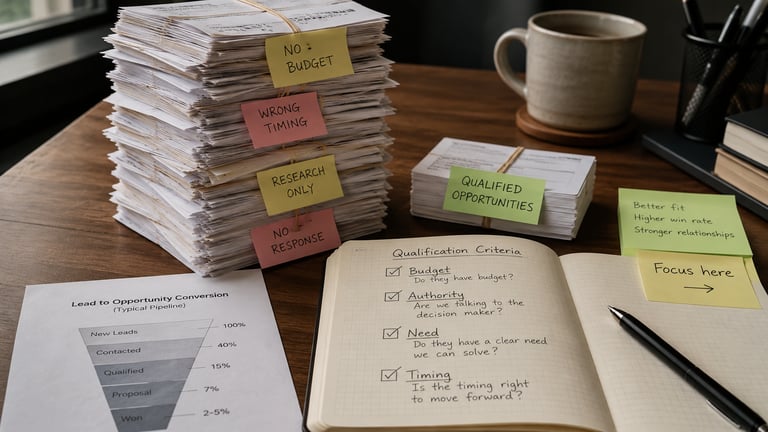 NO
BUDGET
WRONG
TIMING
RESEARCH
ONLY
NO
RESPONSE
QUALIFIED
OPPORTUNITIES
Better fit
Higher win rate
Stronger relationships
Focus here
→
Qualification Criteria
Budget
Do they have budget?
Authority
Are we talking to the
decision maker?
Need
Do they have a clear need
we can solve?
Timing
Is the timing right
to move forward?
Lead to Opportunity Conversion
(Typical Pipeline)
New Leads 100%
Contacted 40%
Qualified 15%
Proposal 7%
Won 2-5%